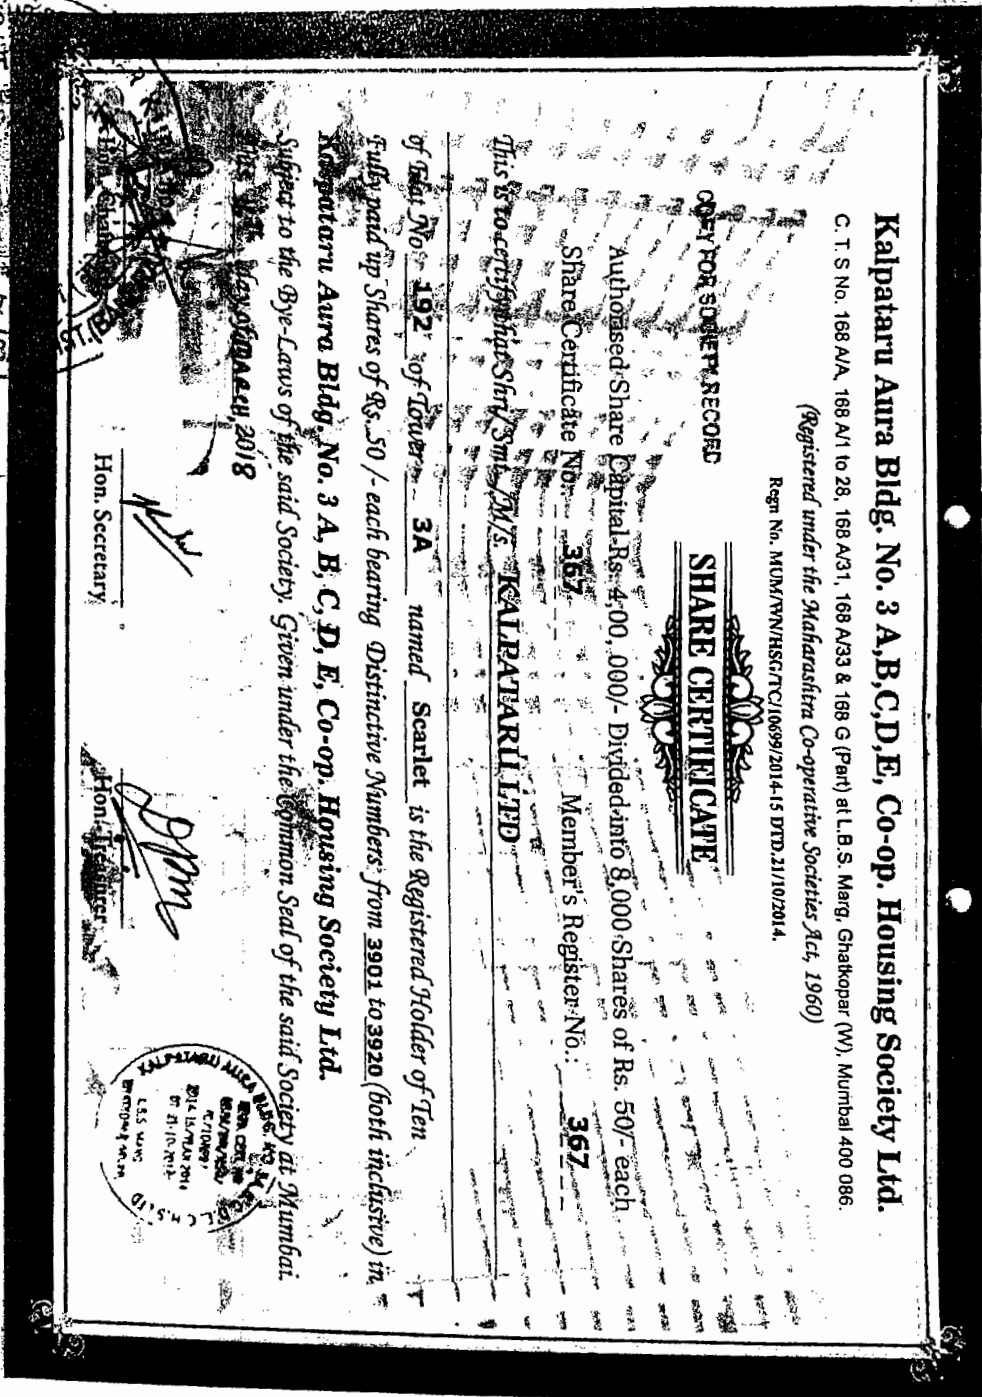 Kalpataru Aura Bldg. No. 3 A,B,C,D,E, Co-op. Housing Society Ltd.
C. T. S No. 168 A/A, 168 A/1 to 28, 168 A/31, 168 A/33 & 168 G (Part) at L.B.S. Marg, Ghatkopar (W), Mumbai 400 086.
(Registered under the Maharashtra Co-operative Societies Act, 1960)
Regn No. MUM/WN/HSG/TC/10699/2014-15 DTD.21/10/2014.
COPY FOR SOCIETY RECORD
SHARE CERTIFICATE
Authorised Share Capital Rs. 4,00, 000/- Divided into 8,000 Shares of Rs. 50/- each
Share Certificate No.: 367 Member's Register No.: 367
This is to certify that Shri/ Smt. /M/s. KALPATARU LTD
of Flat No. 192 of Tower 3A named Scarlet is the Registered Holder of Ten
Fully paid up Shares of Rs. 50 /- each bearing Distinctive Numbers from 3901 to 3920 (both inclusive) in
Kalpataru Aura Bldg. No. 3 A, B, C, D, E, Co-op. Housing Society Ltd.
Subject to the Bye-Laws of the said Society. Given under the Common Seal of the said Society at Mumbai.
day of MARCH, 2018
Hon. Secretary Hon. Treasurer
KALPATARU AURA BLDG. NO